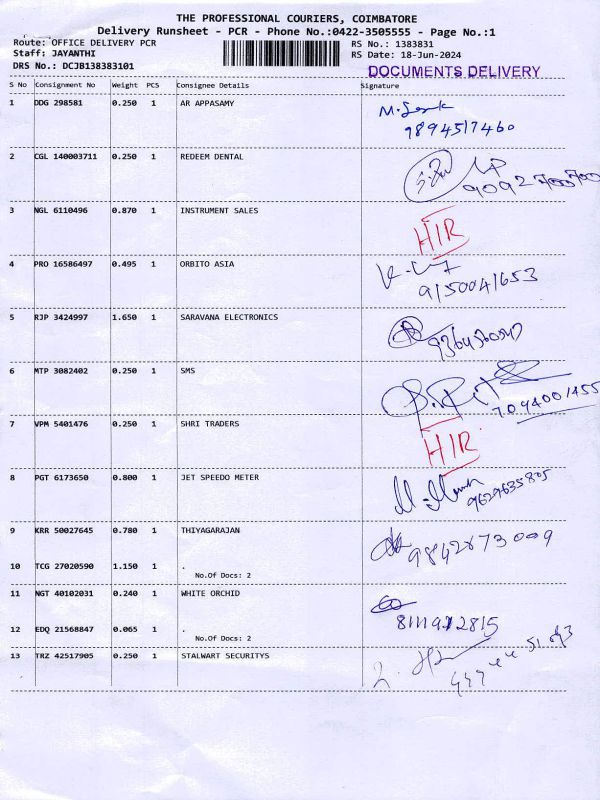 THE PROFESSIONAL COURIERS, COIMBATORE
Delivery Runsheet - PCR - Phone No.:0422-3505555 - Page No.:1
Route: OFFICE DELIVERY PCR
RS No.: 1383831
Staff: JAYANTHI
RS Date: 18-Jun-2024
DRS No.: DCJB138383101
DOCUMENTS DELIVERY
S No Consignment No Weight PCS Consignee Details Signature
1 DDG 298581 0.250 1 AR APPASAMY
9894517460
2 CGL 140003711 0.250 1 REDEEM DENTAL
9092700700
3 NGL 6110496 0.870 1 INSTRUMENT SALES HIR
4 PRO 16586497 0.495 1 ORBITO ASIA
9150041653
5 RJP 3424997 1.650 1 SARAVANA ELECTRONICS
6 MTP 3082402 0.250 1 SMS
7094001455
7 VPM 5401476 0.250 1 SHRI TRADERS HIR
8 PGT 6173650 0.800 1 JET SPEEDO METER
9629635805
9 KRR 50027645 0.780 1 THIYAGARAJAN
9842873009
10 TCG 27020590 1.150 1 .
No.Of Docs: 2
11 NGT 40102031 0.240 1 WHITE ORCHID
8111912815
12 EDQ 21568847 0.065 1 .
No.Of Docs: 2
13 TRZ 42517905 0.250 1 STALWART SECURITYS